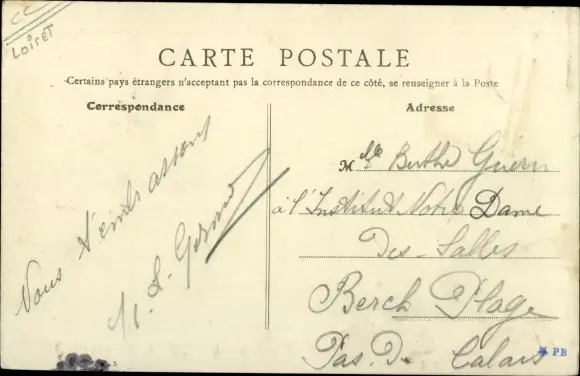 CC
Loiret
CARTE POSTALE
Certains pays étrangers n'acceptant pas la correspondance de ce côté, se renseigner à la Poste
Correspondance
Adresse
Vous
Mlle Berthe
à l'Institut Notre Dame
Des Salles
Berck Plage
Pas-De Calais
PB